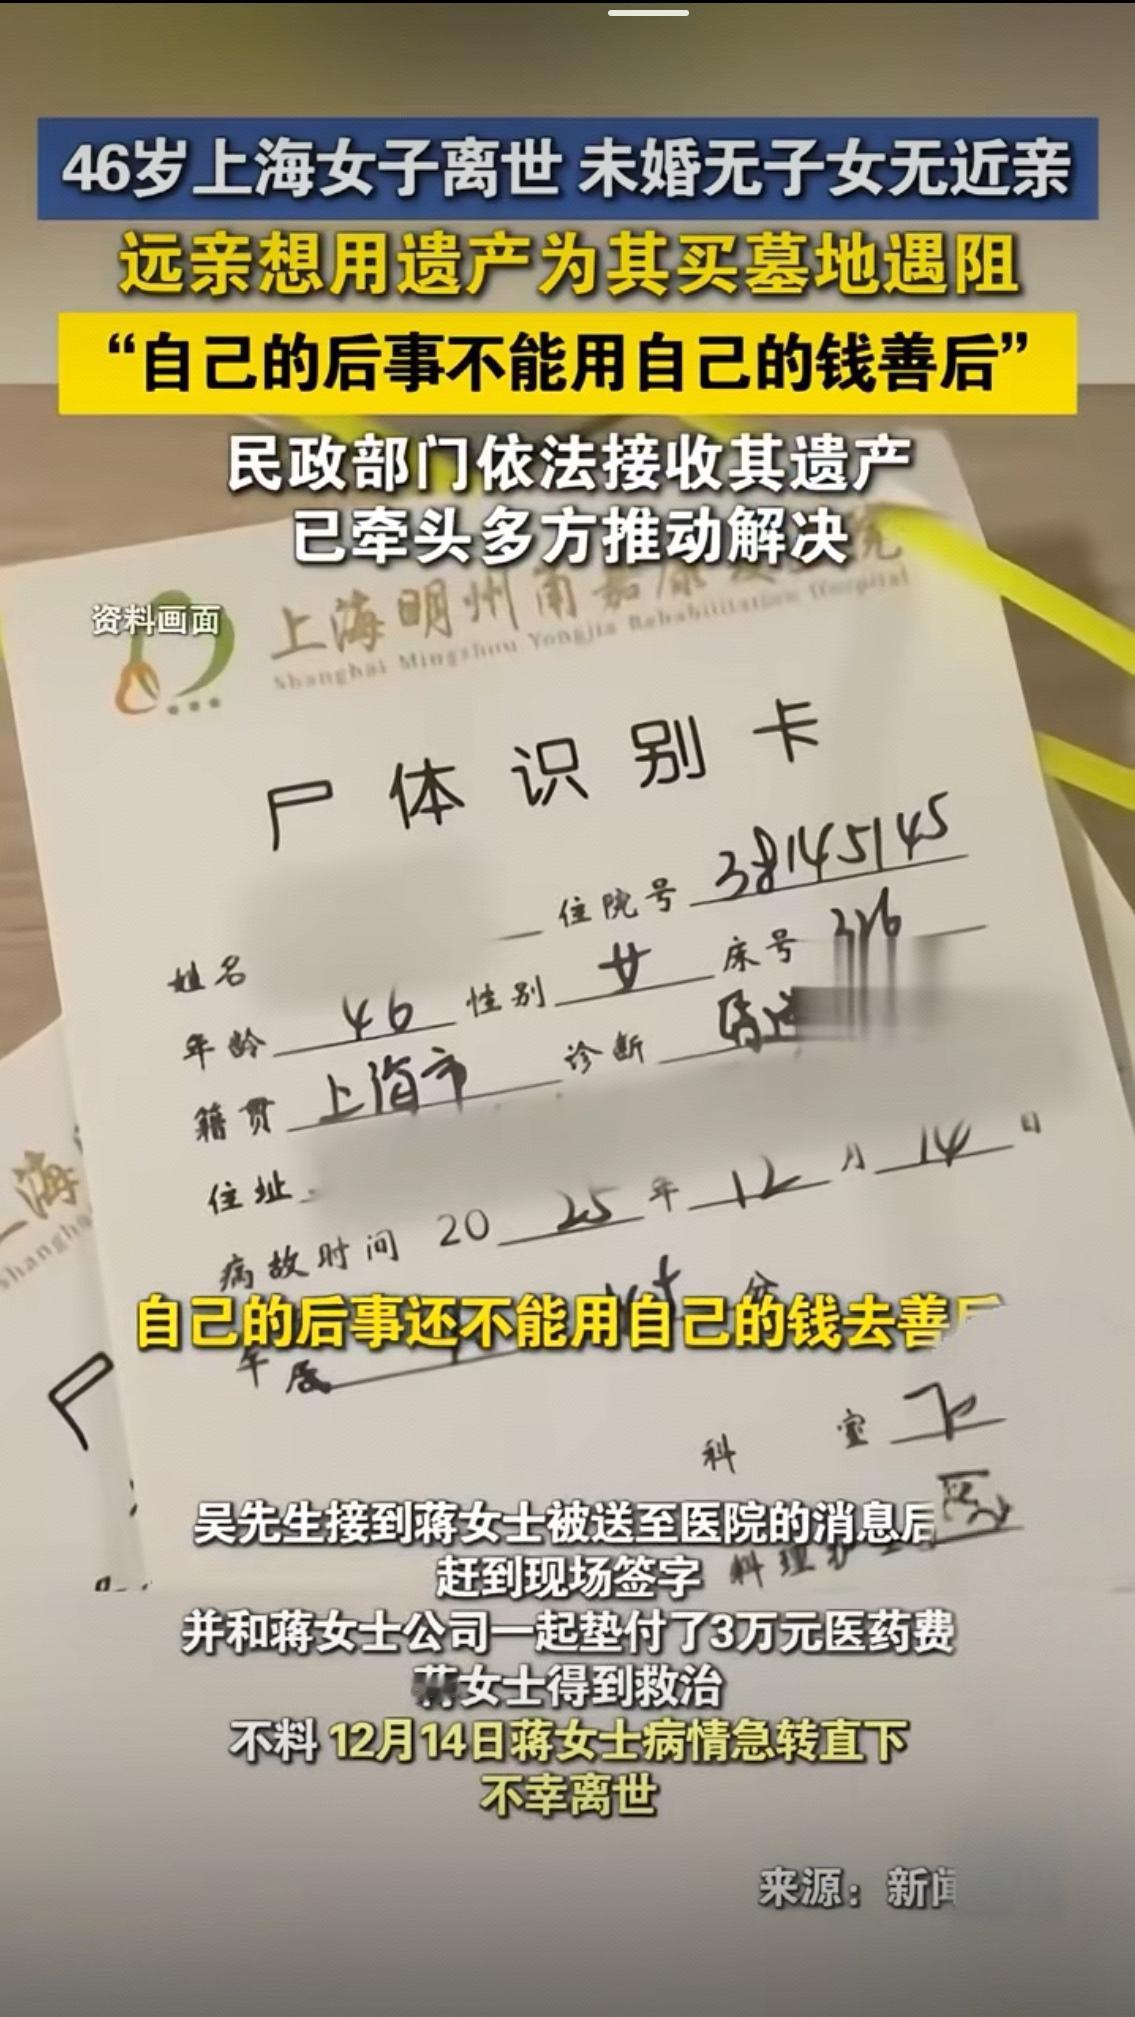 46岁上海女子离世 未婚无子女无近亲
远亲想用遗产为其买墓地遇阻
“自己的后事不能用自己的钱善后”
民政部门依法接收其遗产
已牵头多方推动解决
资料画面
上海明州甬嘉康复医院
Shanghai Mingzhou Yongjia Rehabilitation Hospital
尸体识别卡
姓名 住院号 38145145
年龄 46 性别 女 床号
籍贯 上海市 诊断
住址
病故时间 2025年12月14日
自己的后事还不能用自己的钱去善后
科 室
吴先生接到蒋女士被送至医院的消息后
赶到现场签字
并和蒋女士公司一起垫付了3万元医药费
蒋女士得到救治
不料 12月14日蒋女士病情急转直下
不幸离世
来源：新闻